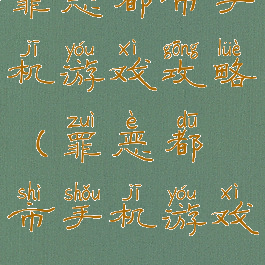 罪恶都市手
jī yóu xì gōng lüè
机游戏攻略
zuì è dū
(罪恶都
shì shǒu jī yóu xì
市手机游戏